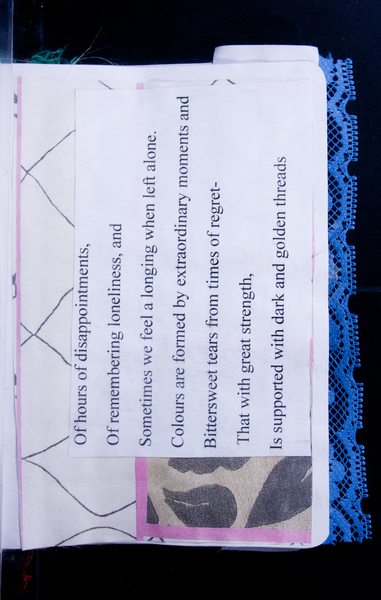 Of hours of disappointments,
Of remembering loneliness, and
Sometimes we feel a longing when left alone.
Colours are formed by extraordinary moments and
Bittersweet tears from times of regret-
That with great strength,
Is supported with dark and golden threads